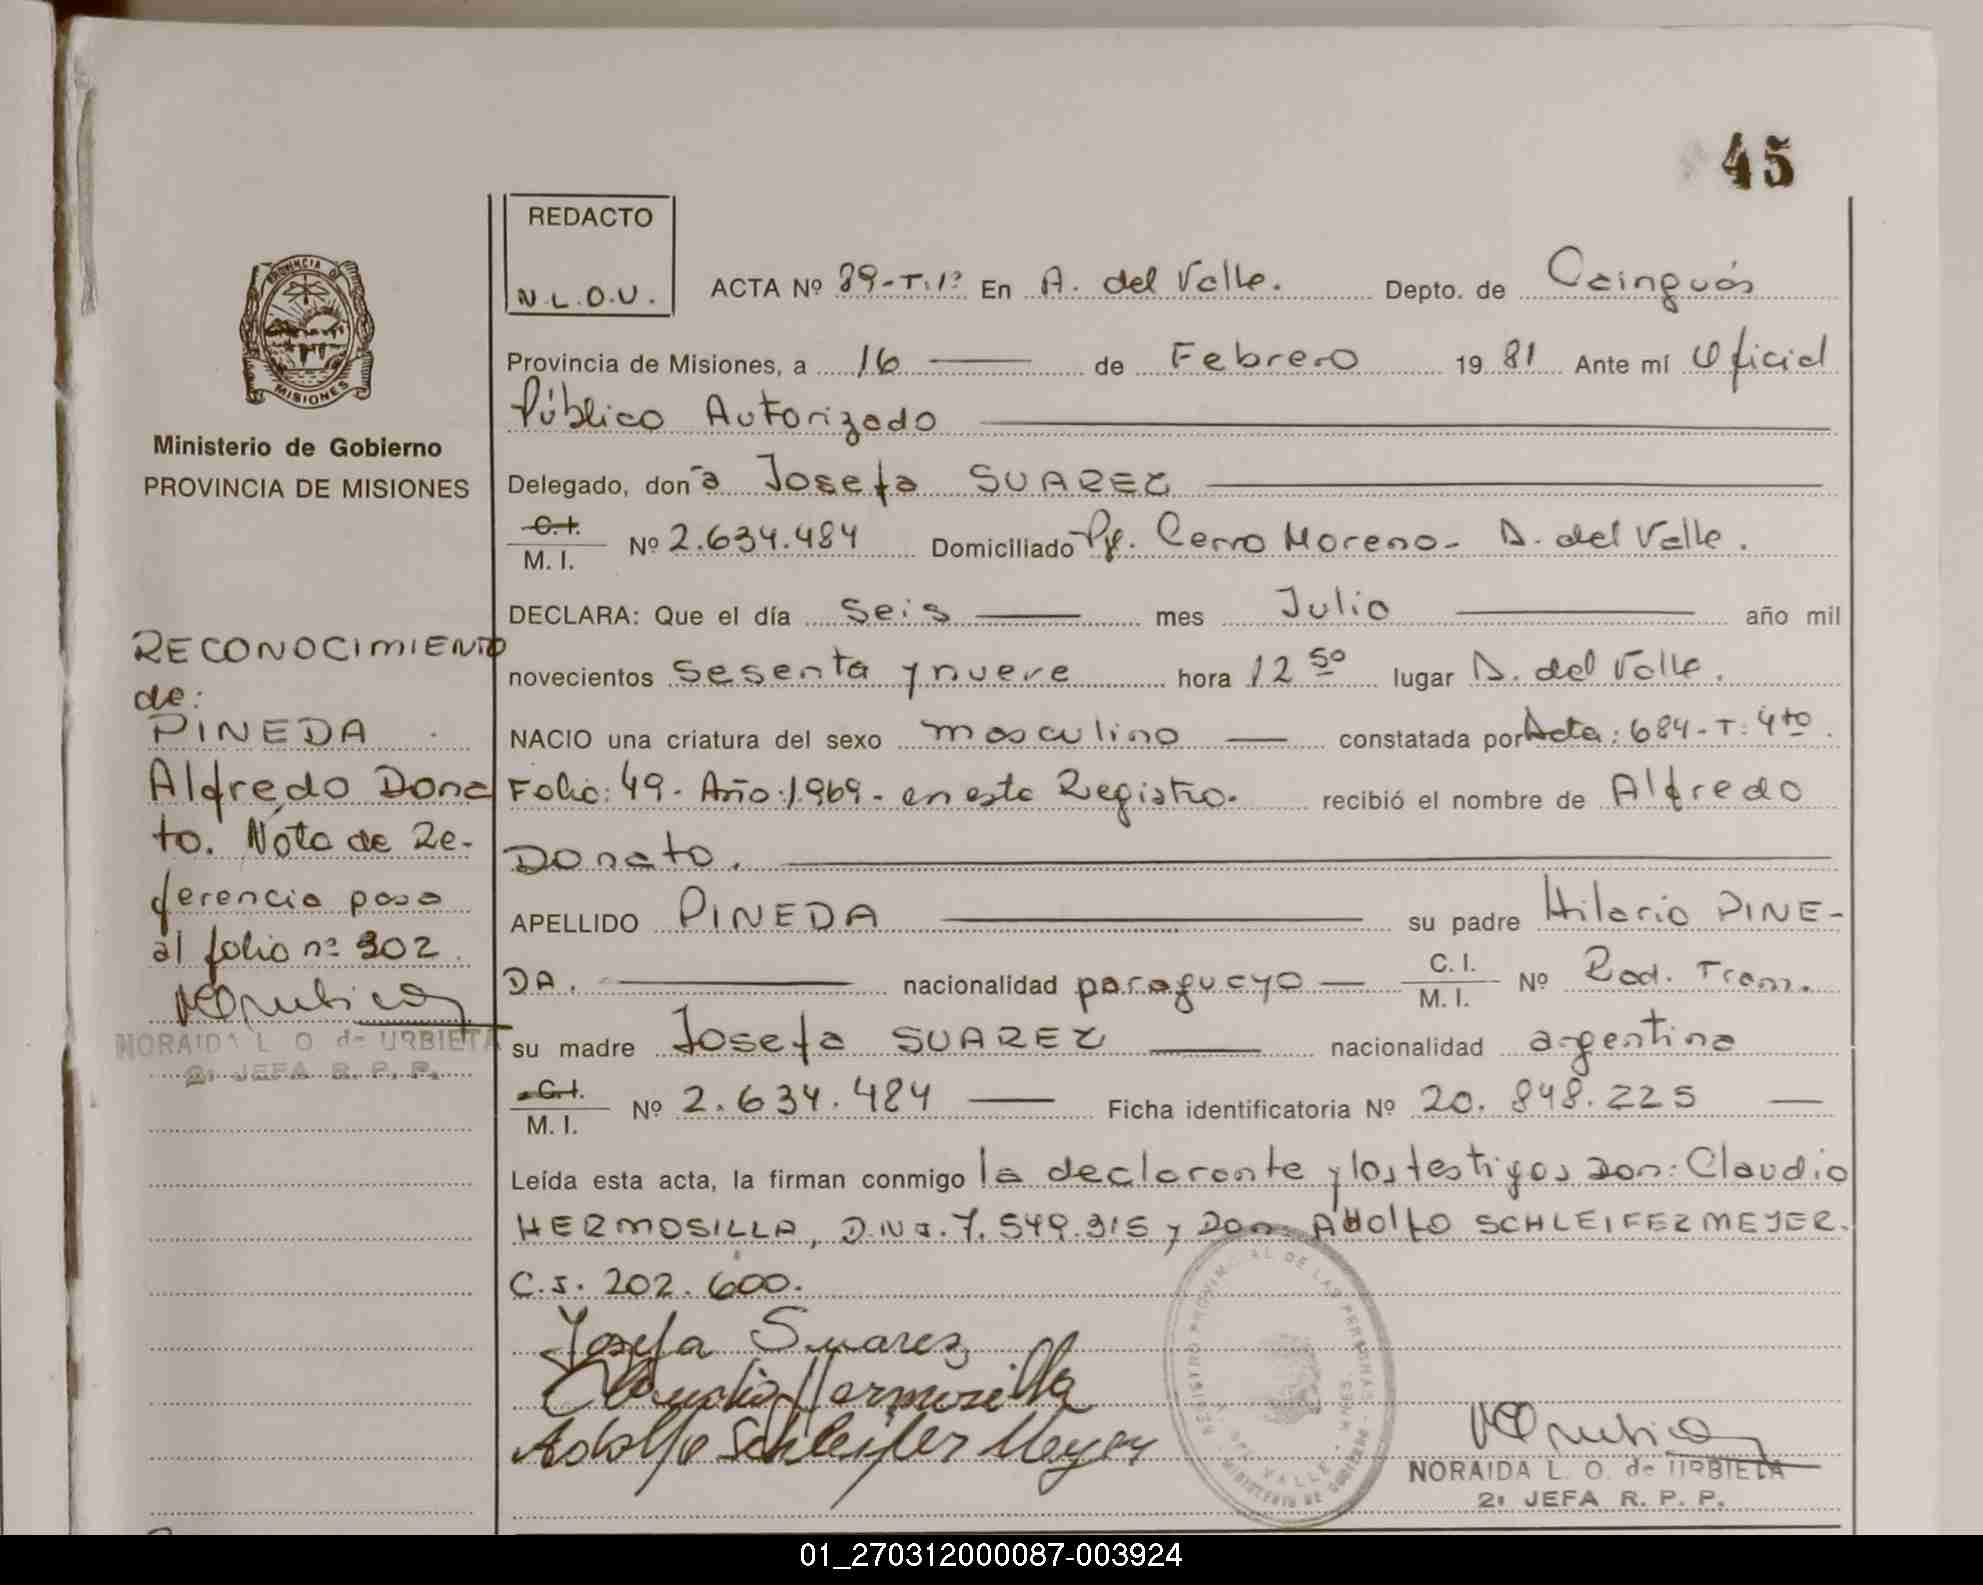 45
REDACTO
N.L.O.U.
ACTA Nº 89-T.1º En A. del Valle. Depto. de Cainguás
Provincia de Misiones, a 16 de Febrero 19 81 Ante mí Oficial
Público Autorizado
Delegado, don a Josefa SUAREZ
C.I. M.I. Nº 2.634.484 Domiciliado Pje. Cerro Moreno- A. del Valle.
DECLARA: Que el día seis mes Julio año mil
novecientos sesenta y nueve hora 12 50 lugar A. del Valle.
NACIO una criatura del sexo masculino constatada por Acta: 684-T: 4to.
Folio: 49- Año: 1.969- en este Registro. recibió el nombre de Alfredo
Donato.
APELLIDO PINEDA su padre Hilario PINE-
DA. nacionalidad paraguayo C.I. M.I. Nº Rad. Tram.
su madre Josefa SUAREZ nacionalidad argentina
C.I. M.I. Nº 2.634.484 Ficha identificatoria Nº 20.848.225
Leída esta acta, la firman conmigo la declarante y los testigos Don: Claudio
HERMOSILLA, D.N.I. 7.549.915 y Don: Adolfo SCHLEIFERMEYER.
C.I. 202.600.
Josefa Suarez
Claudio Hermosilla
Adolfo Schleifer Meyer
REGISTRO PROVINCIAL DE LAS PERSONAS
A. DEL VALLE - MNES.
MINISTERIO DE GOBIERNO
NORAIDA L. O. de URBIETA
2ª JEFA R. P. P.
PROVINCIA D MISIONES
Ministerio de Gobierno
PROVINCIA DE MISIONES
RECONOCIMIENTO
de:
PINEDA
Alfredo Dona
to. Nota de Re-
ferencia pasa
al folio nº 302.
NORAIDA L. O. de URBIETA
2ª JEFA R. P. P.
01_270312000087-003924